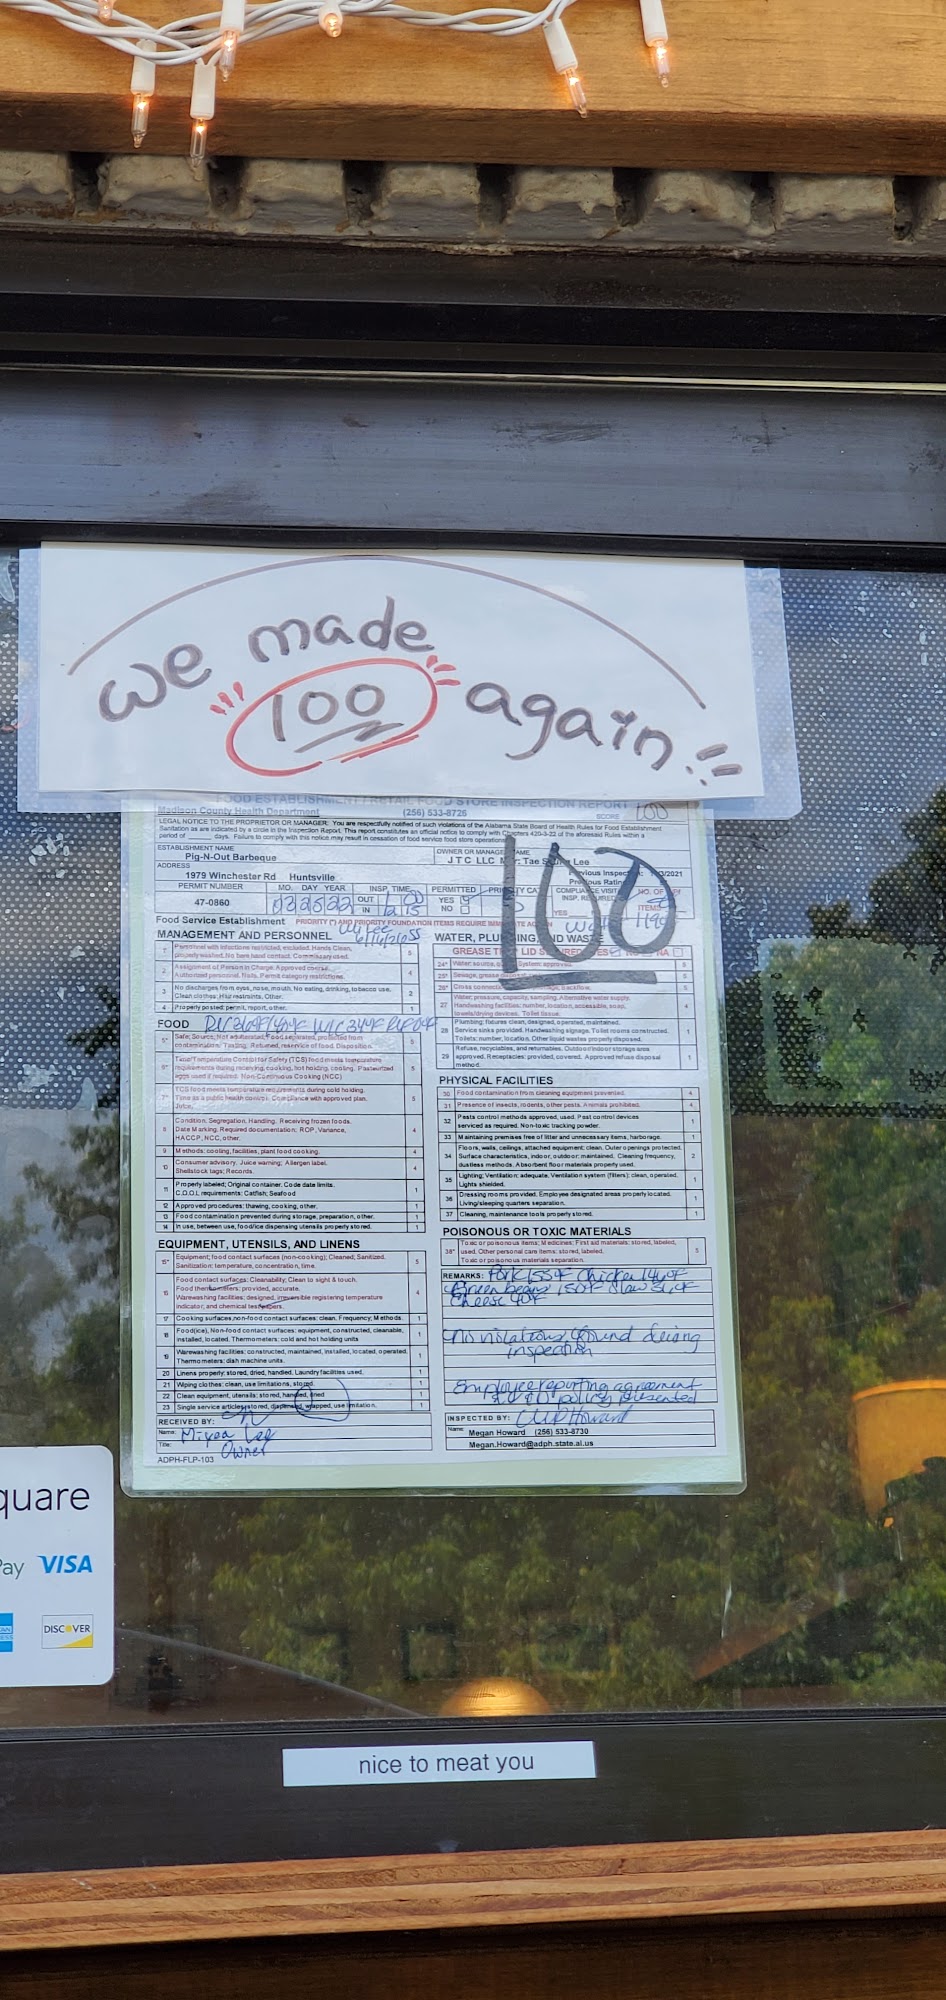 we made
100 again!!
FOOD ESTABLISHMENT / RETAIL FOOD STORE INSPECTION REPORT
Madison County Health Department (256) 533-8726 SCORE 100
LEGAL NOTICE TO THE PROPRIETOR OR MANAGER: You are respectfully notified of such violations of the Alabama State Board of Health Rules for Food Establishment
Sanitation as are indicated by a circle in the Inspection Report. This report constitutes an official notice to comply with Chapters 420-3-22 of the aforesaid Rules within a
period of ____ days. Failure to comply with this notice may result in cessation of food service food store operations.
ESTABLISHMENT NAME
Pig-N-Out Barbeque
OWNER OR MANAGER NAME
J T C LLC Tae Lee
ADDRESS
1979 Winchester Rd Huntsville
100
PERMIT NUMBER
47-0860
MO. DAY YEAR
032522
INSP. TIME
OUT
IN
PERMITTED
YES
NO
Food Service Establishment
MANAGEMENT AND PERSONNEL
1 Personnel with infections restricted, excluded. Hands Clean, 5
properly washed. No bare hand contact. Commissary used.
2 Assignment of Person in Charge. Approved course. 4
Authorized personnel. Nails. Permit category restrictions.
3 No discharges from eyes, nose, mouth. No eating, drinking, tobacco use. 2
Clean clothes; Hair restraints, Other.
4 Properly posted: permit, report, other. 1
FOOD
5* Safe; Source; Not adulterated; Food separated, protected from 5
contamination; Tasting. Returned, reservice of food. Disposition.
6* Time/Temperature Control for Safety (TCS) food meets temperature 5
requirements during receiving, cooking, hot holding, cooling. Pasteurized
eggs used if required. Non-Continuous Cooking (NCC)
7* TCS food meets temperature requirements during cold holding. 5
Time as a public health control. Compliance with approved plan.
Juice.
8 Condition, Segregation, Handling, Receiving frozen foods. 4
Date Marking, Required documentation: ROP, Variance,
HACCP, NCC, other.
9 Methods: cooling, facilities, plant food cooking. 4
10 Consumer advisory, Juice warning; Allergen label. 4
Shellstock tags; Records.
11 Properly labeled; Original container. Code date limits. 1
C.O.O.L. requirements: Catfish; Seafood
12 Approved procedures: thawing, cooking, other. 1
13 Food contamination prevented during storage, preparation, other. 1
14 In use, between use, food/ice dispensing utensils properly stored. 1
EQUIPMENT, UTENSILS, AND LINENS
15* Equipment; food contact surfaces (non-cooking): Cleaned; Sanitized. 5
Sanitization: temperature, concentration, time.
16 Food contact surfaces: Cleanability; Clean to sight & touch. 4
Food thermometers: provided, accurate.
Warewashing facilities: designed, irreversible registering temperature
indicator; and chemical test papers.
17 Cooking surfaces, non-food contact surfaces: clean, Frequency; Methods. 1
18 Food(ice), Non-food contact surfaces: equipment, constructed, cleanable, 1
installed, located. Thermometers: cold and hot holding units
19 Warewashing facilities: constructed, maintained, installed, located, operated. 1
Thermometers: dish machine units.
20 Linens properly: stored, dried, handled. Laundry facilities used. 1
21 Wiping clothes: clean, use limitations, stored. 1
22 Clean equipment, utensils: stored, handled, dried 1
23 Single service articles: stored, dispensed, wrapped, use limitation. 1
RECEIVED BY:
Name: Lee
Title: Owner
ADPH-FLP-103
WATER, PLUMBING, AND WASTE
24* Water: source, System: approved.
25* Sewage, grease
26* Cross connection, backflow.
27 Water: pressure, capacity, sampling. Alternative water supply. 4
Handwashing facilities: number, location, accessible, soap,
towels/drying devices. Toilet tissue.
28 Plumbing: fixtures clean, designed, operated, maintained. 1
Service sinks provided. Handwashing signage. Toilet rooms constructed.
Toilets: number, location. Other liquid wastes properly disposed.
29 Refuse, recyclables, and returnables. Outdoor/indoor storage area 1
approved. Receptacles: provided, covered. Approved refuse disposal
method.
PHYSICAL FACILITIES
30 Food contamination from cleaning equipment prevented. 4
31 Presence of insects, rodents, other pests. Animals prohibited. 4
32 Pests control methods approved, used. Pest control devices 1
serviced as required. Non-toxic tracking powder.
33 Maintaining premises free of litter and unnecessary items, harborage. 1
34 Floors, walls, ceilings, attached equipment: clean. Outer openings protected. 2
Surface characteristics, indoor, outdoor: maintained. Cleaning frequency,
dustless methods. Absorbent floor materials properly used.
35 Lighting; Ventilation: adequate. Ventilation system (filters): clean, operated. 1
Lights shielded.
36 Dressing rooms provided. Employee designated areas properly located. 1
Living/sleeping quarters separation.
37 Cleaning, maintenance tools properly stored. 1
POISONOUS OR TOXIC MATERIALS
38* Toxic or poisonous items; Medicines; First aid materials: stored, labeled, 5
used. Other personal care items: stored, labeled.
Toxic or poisonous materials separation.
REMARKS: Pork 155°F Chicken 146°F
Green beans 150°F slaw
cheese 40°F
No violations found during
inspection
Employee reporting agreement
policy presented
INSPECTED BY: Howard
Name: Megan Howard (256) 533-8730
Megan.Howard@adph.state.al.us
quare
Pay VISA
DISCOVER
nice to meat you